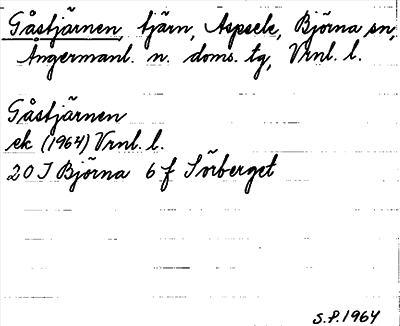 Gåstjärnen, tjärn, Aspsele, Björna sn,
Ångermanl. n. doms. tg, Vrnl. l.
Gåstjärnen
ek (1964) Vrnl. l.
20 I Björna 6 f Sörberget
S.P. 1964